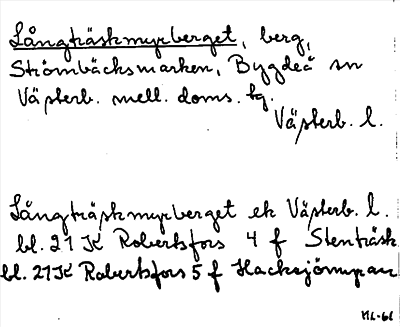 Långträskmyrberget, berg,
Strömbäcksmarken, Bygdeå sn
Västerb. mell. doms. tg.
Västerb. l.
Långträskmyrberget ek Västerb. l.
bl. 21 K Robertsfors 4 f Stenträsk
bl. 21K Robertsfors 5 f Hacksjömyran